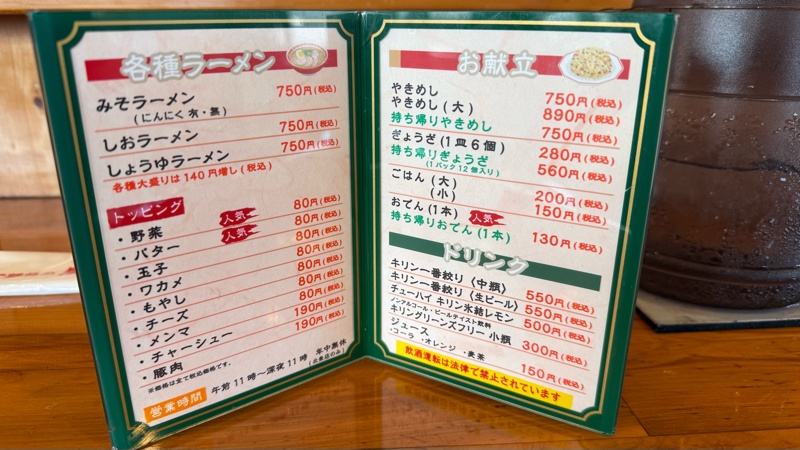 各種ラーメン
みそラーメン 750円(税込)
(にんにく 有・無)
しおラーメン 750円(税込)
しょうゆラーメン 750円(税込)
各種大盛りは140円増し(税込)
トッピング
・野菜 人気 80円(税込)
・バター 人気 80円(税込)
・玉子 80円(税込)
・ワカメ 80円(税込)
・もやし 80円(税込)
・チーズ 80円(税込)
・メンマ 80円(税込)
・チャーシュー 190円(税込)
・豚肉 190円(税込)
※価格は全て税込価格です。
営業時間 午前11時〜深夜11時 年中無休
お献立
やきめし 750円(税込)
やきめし(大) 890円(税込)
持ち帰りやきめし 750円(税込)
ぎょうざ(1皿6個) 280円(税込)
持ち帰りぎょうざ 560円(税込)
(1パック12個入り)
ごはん(大) 200円(税込)
(小) 150円(税込)
おでん(1本) 人気
持ち帰りおでん(1本) 130円(税込)
ドリンク
キリン一番搾り〈中瓶〉 550円(税込)
キリン一番搾り〈生ビール〉 550円(税込)
チューハイ キリン氷結レモン 500円(税込)
ノンアルコール・ビールテイスト飲料
キリングリーンズフリー 小瓶 300円(税込)
ジュース 150円(税込)
・コーラ ・オレンジ ・麦茶
飲酒運転は法律で禁止されています